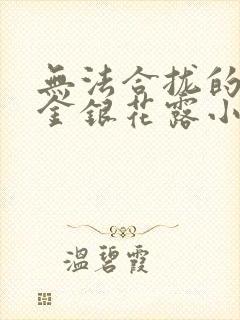 無法合拢的
金銀花露小
溫碧霞